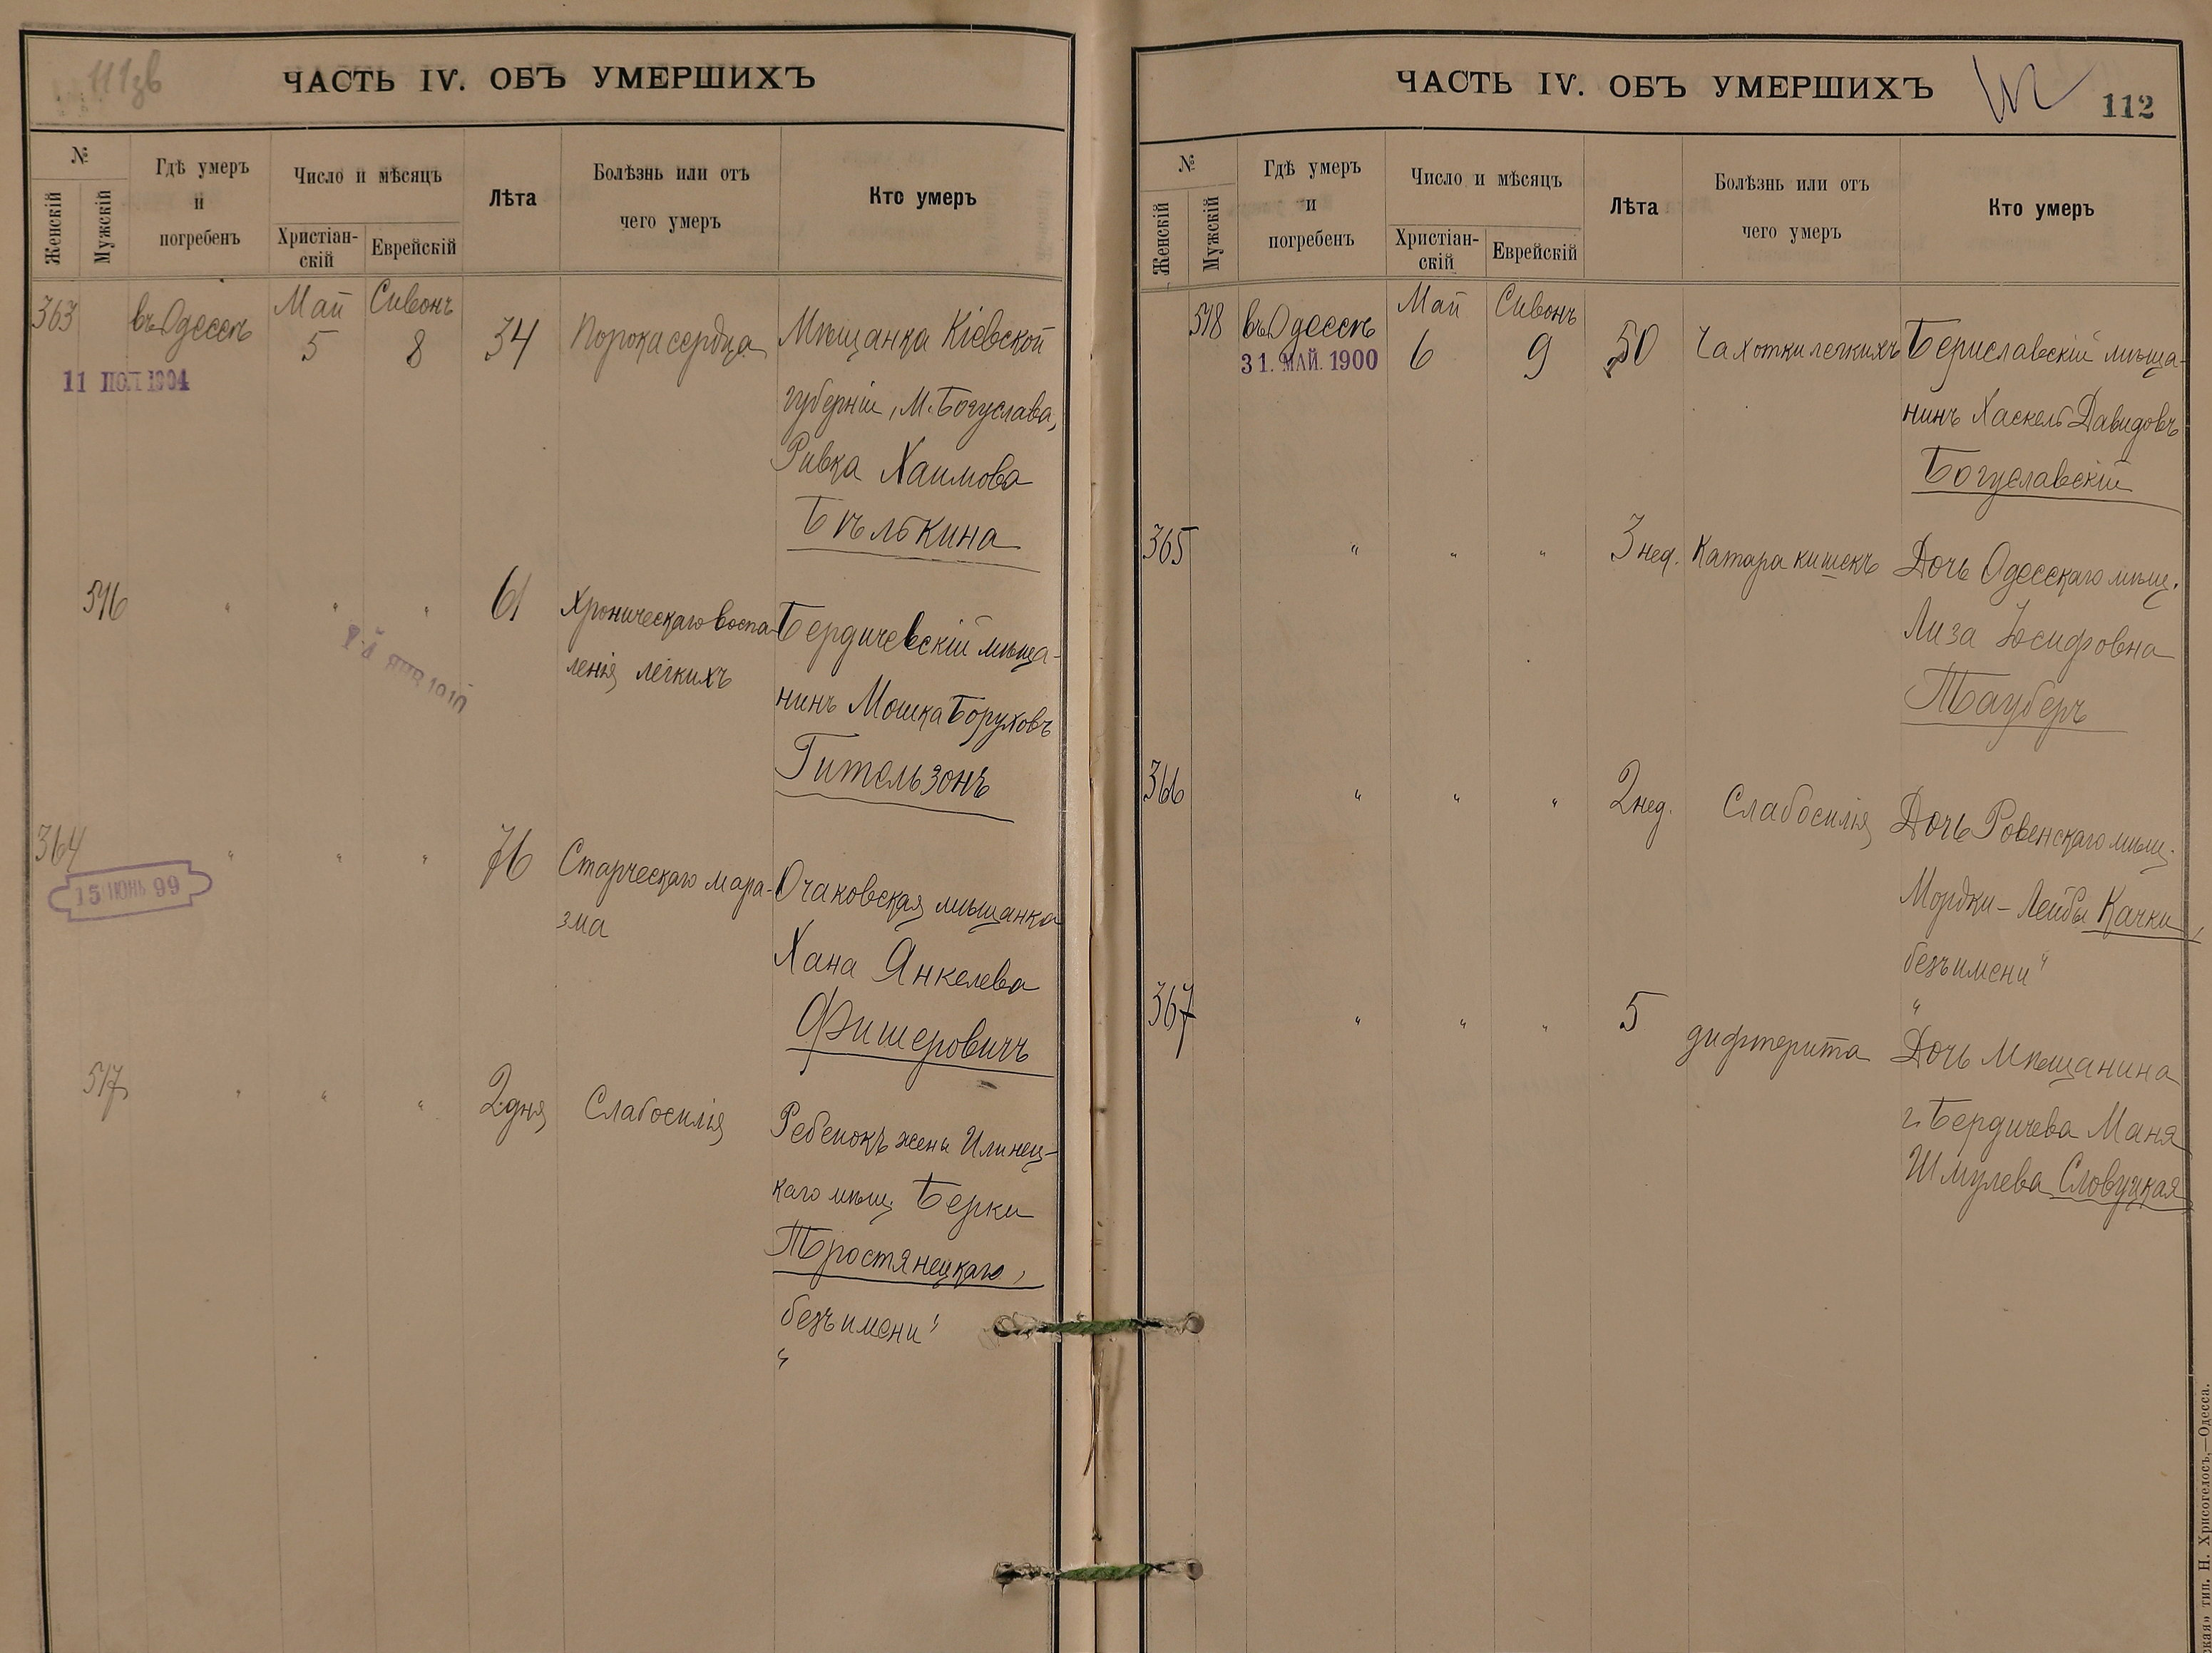 111зв
ЧАСТЬ IV. ОБЪ УМЕРШИХЪ
№
Женскій
Мужскій
Гдѣ умеръ
и
погребенъ
Число и мѣсяцъ
Христіан-
скій
Еврейскій
Лѣта
Болѣзнь или отъ
чего умеръ
Кто умеръ
363
въ Одессѣ
11 1904
Май
5
Сивонъ
8
34
Порока сердца
Мѣщанка Кіевской
губерніи, М. Богуслава,
Ривка Хаимова
Бѣлькина
516
"
"
"
ЯНВ 1910
61
Хроническаго воспа-
ленія легкихъ
Бердичевскій мѣща-
нинъ Мошка Боруховъ
Гительзонъ
364
15 ІЮНЬ 99
"
"
"
76
Старческаго мара-
зма
Очаковская мѣщанка
Хана Янкелева
Фишеровичъ
517
"
"
"
2 дня
Слабосилія
Ребенокъ жены Илинец-
каго мѣщ. Берки
Тростянецкаго,
безъ имени"
"
ЧАСТЬ IV. ОБЪ УМЕРШИХЪ
112
№
Женскій
Мужскій
Гдѣ умеръ
и
погребенъ
Число и мѣсяцъ
Христіан-
скій
Еврейскій
Лѣта
Болѣзнь или отъ
чего умеръ
Кто умеръ
518
въ Одессѣ
31. МАЙ. 1900
Май
6
Сивонъ
9
50
Чахотки легкихъ
Бериславскій мѣща-
нинъ Хаскель Давидовъ
Богуславскій
365
"
"
"
3 нед.
Катара кишекъ
Дочь Одесскаго мѣщ.
Лиза Іосифовна
Тауберъ
366
"
"
"
2 нед.
Слабосилія
Дочь Ровенскаго мѣщ.
Мордки-Лейбы Качки,
безъ имени"
"
367
"
"
"
5
дифтерита
Дочь Мѣщанина
г. Бердичева Маня
Шмулева Словуцкая
тип. Н. Хрисогелосъ,—Одесса.